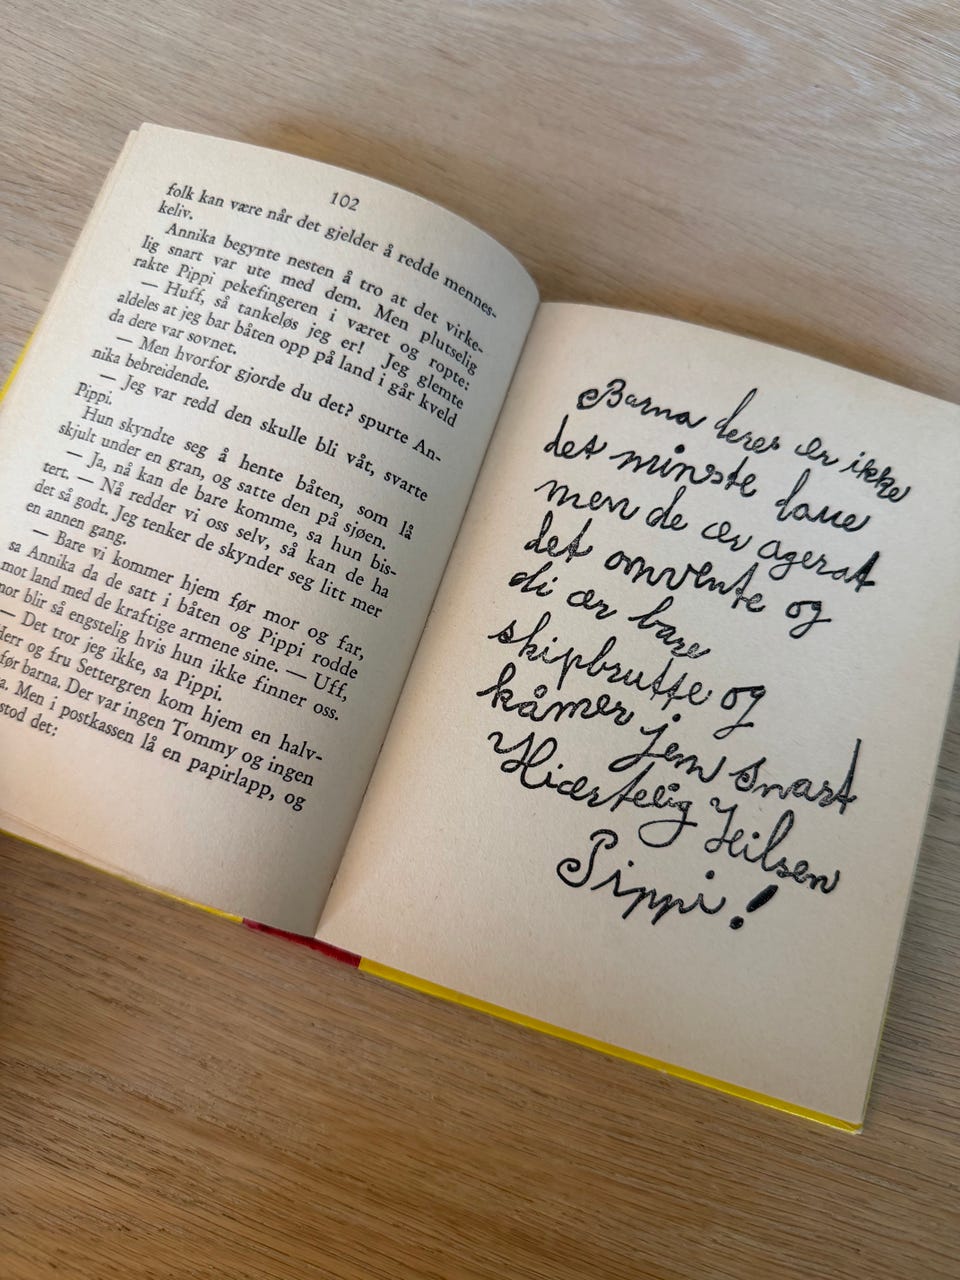 102
folk kan være når det gjelder å redde mennes-
keliv.
Annika begynte nesten å tro at det virke-
lig snart var ute med dem. Men plutselig
rakte Pippi pekefingeren i været og ropte:
— Huff, så tankeløs jeg er! Jeg glemte
aldeles at jeg bar båten opp på land i går kveld
da dere var sovnet.
— Men hvorfor gjorde du det? spurte An-
nika bebreidende.
— Jeg var redd den skulle bli våt, svarte
Pippi.
Hun skyndte seg å hente båten, som lå
skjult under en gran, og satte den på sjøen.
— Ja, nå kan de bare komme, sa hun bis-
tert. — Nå redder vi oss selv, så kan de ha
det så godt. Jeg tenker de skynder seg litt mer
en annen gang.
— Bare vi kommer hjem før mor og far,
sa Annika da de satt i båten og Pippi rodde
mot land med de kraftige armene sine. — Uff,
mor blir så engstelig hvis hun ikke finner oss.
— Det tror jeg ikke, sa Pippi.
Herr og fru Settergren kom hjem en halv-
før barna. Der var ingen Tommy og ingen
Men i postkassen lå en papirlapp, og
stod det:
Barna deres ær ikke
det minste
men de ær
det omvente og
di ær bare
skipbrutte og
kåmer jem snart
Hiærtelig Hilsen
Pippi!